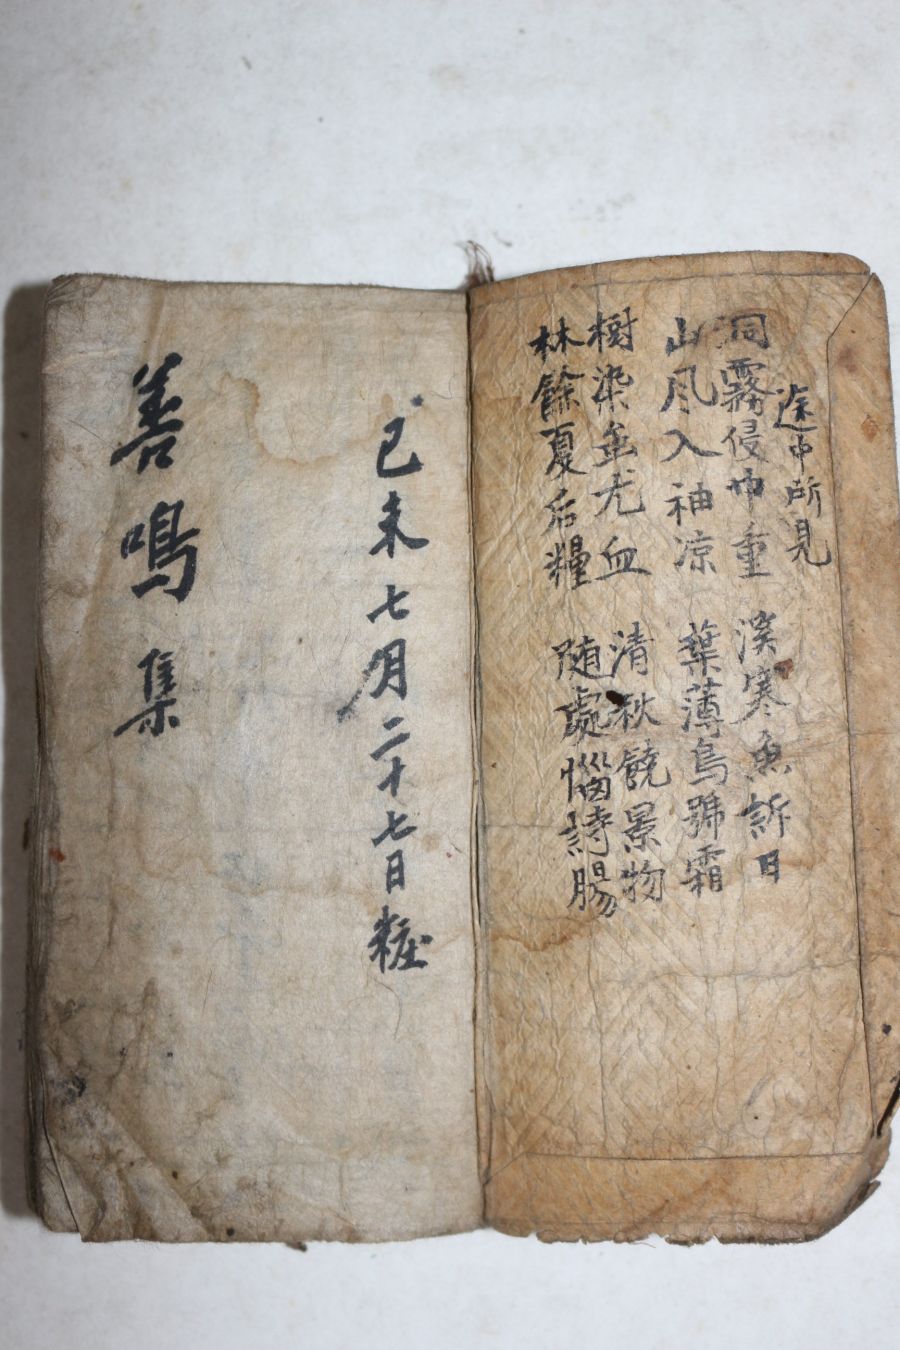 途中所見
洞霧侵巾重 溪寒魚訴日
山风入袖凉 葉薄鳥號霜
樹染蚩尤血 清秋饒景物
林餘夏后糧 随處惱詩腸
己未七月二十七日粧
善鳴集